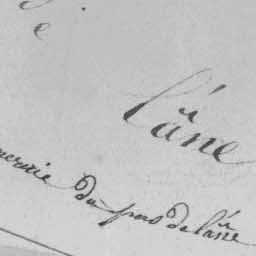 e
l'âne
du pas de l'âne